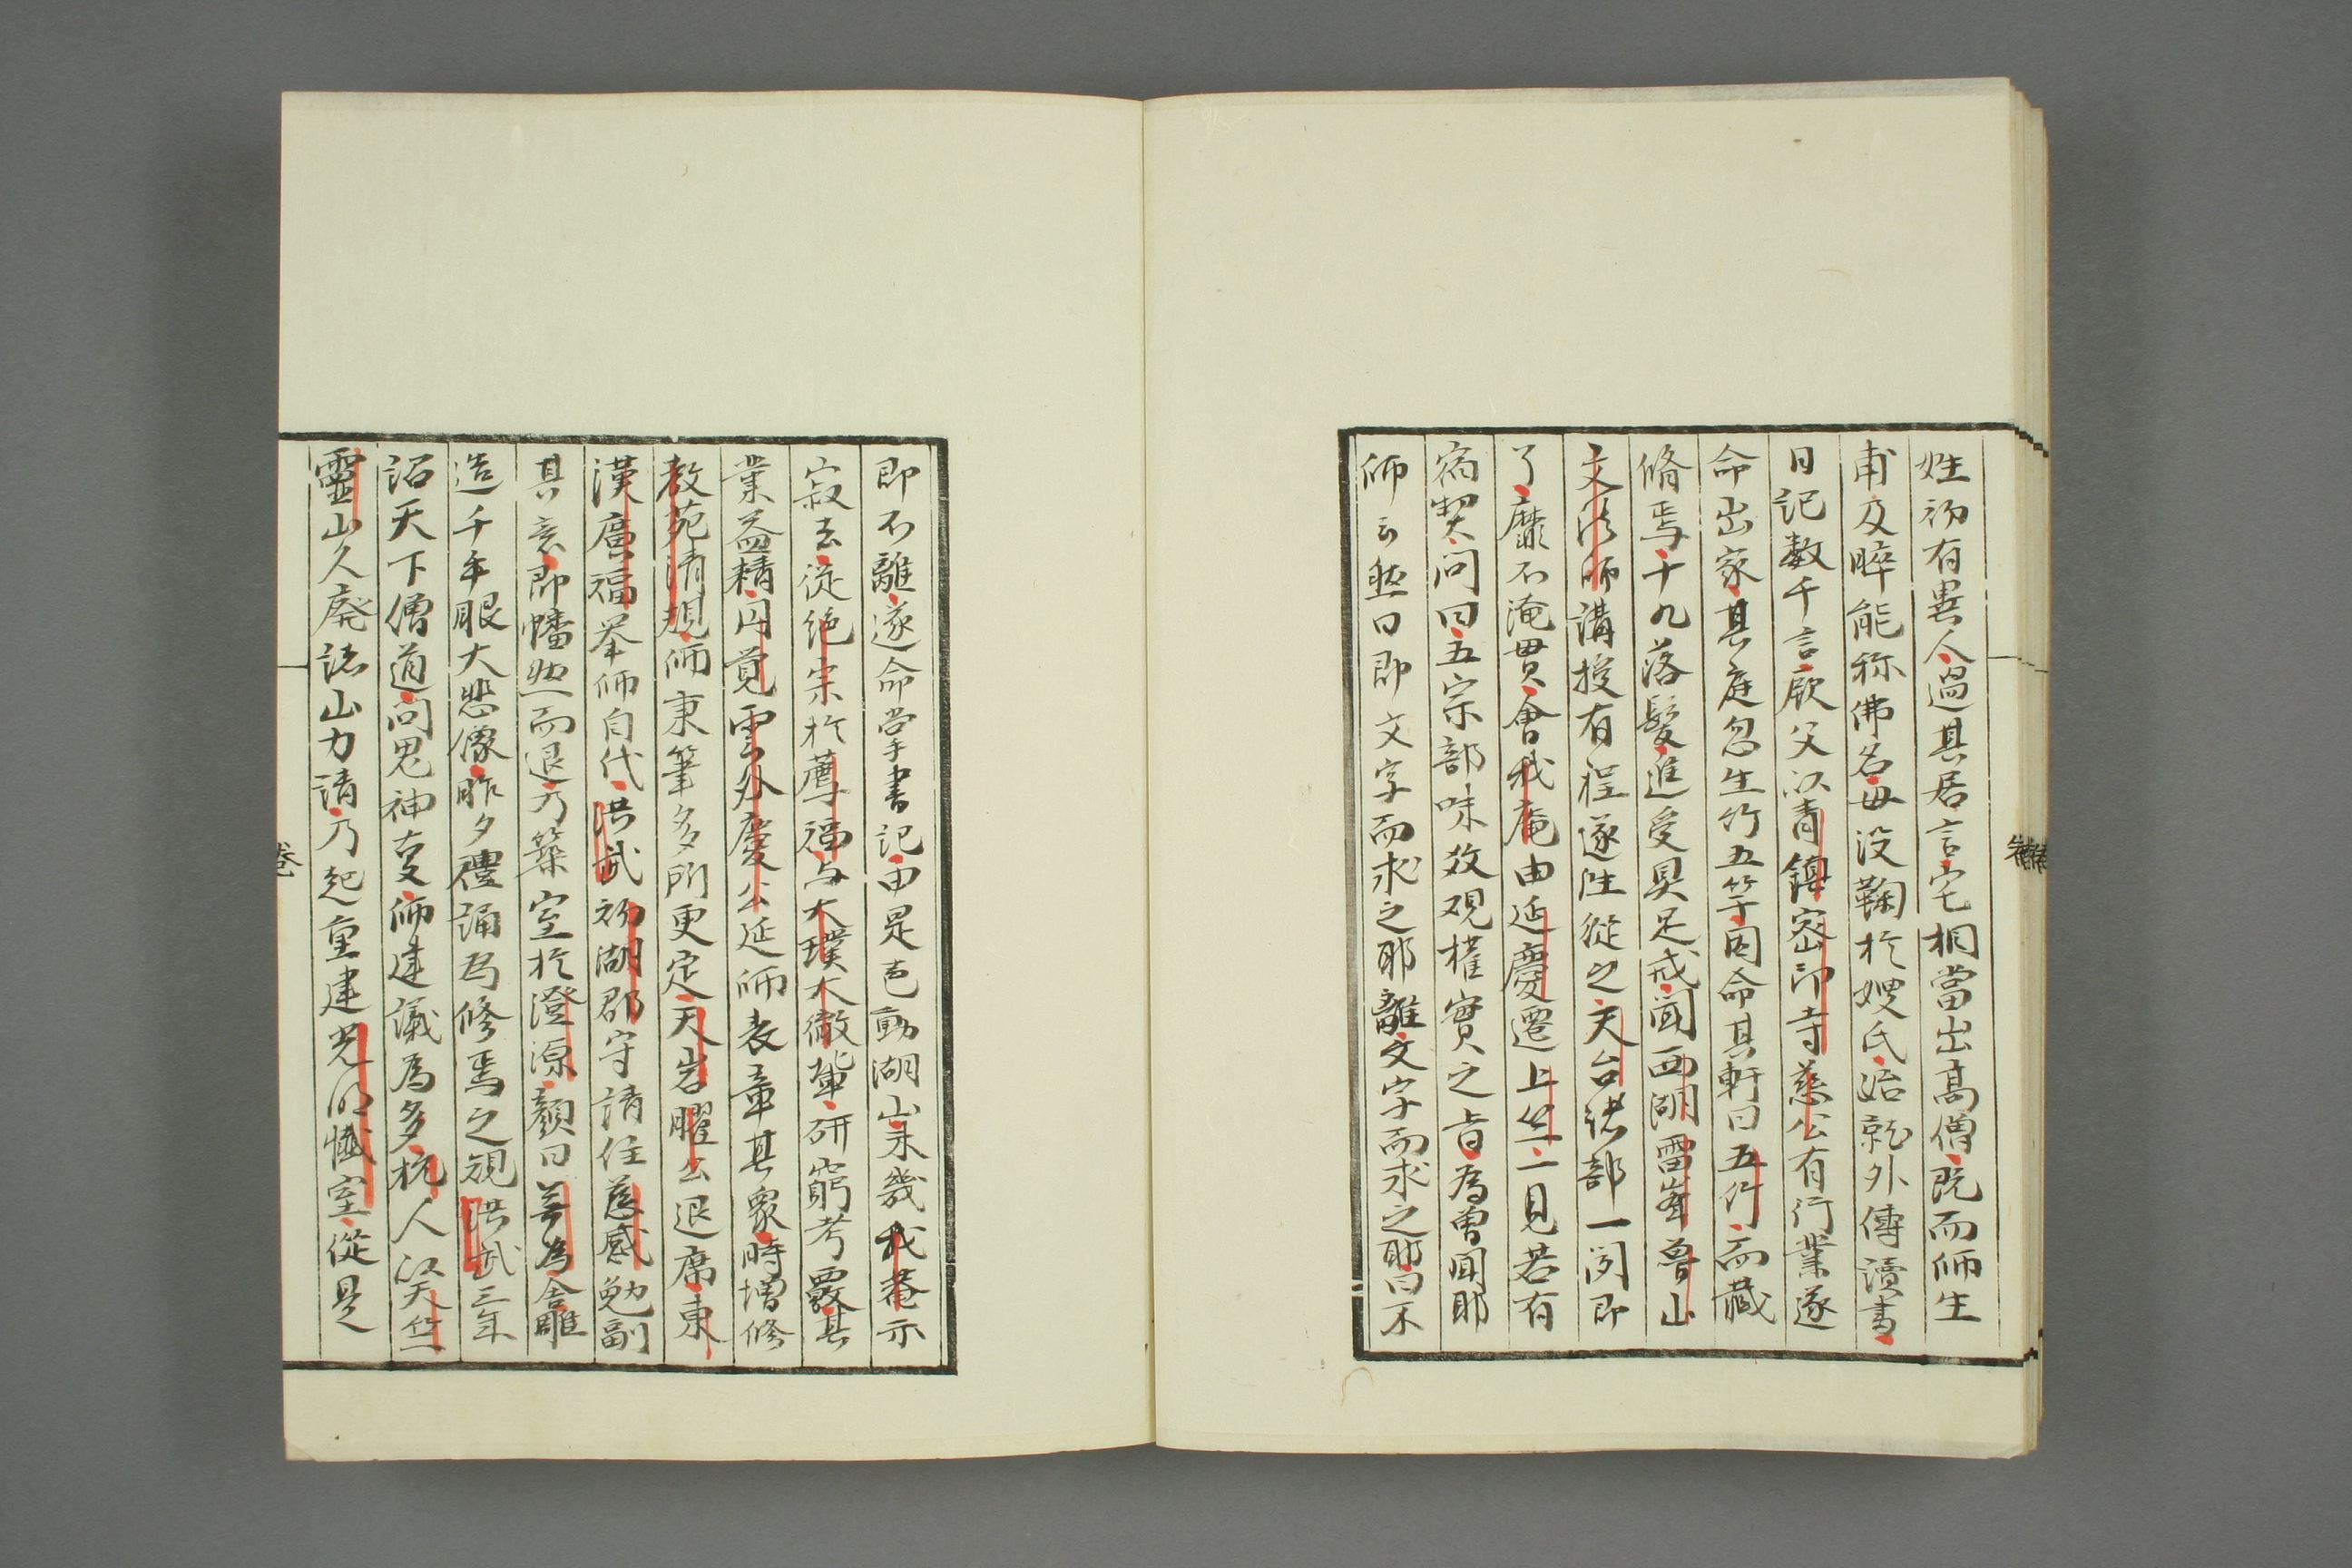 姓初有異人過其居言宅相當出髙僧既而师生
甫及晬能称佛名毋没鞠扵嫂氏始就外傅讀書
日記数千言厥父以青鎮宻印寺慈公有行業遂
命出家其庭忽生竹五竿因命其軒曰五竹而藏
脩焉十九落髮進受具足戒闻西湖雷峯魯山
文法师講授有程遂往從之天台諸部一閱即
了靡不淹貫會我庵由延慶遷上竺一見若有
宿契问曰五宗部味教觀權實之旨為曽聞耶
师云然曰即文字而求之耶離文字而求之耶曰不
即不離遂命掌書記由是声動湖山未幾我菴示
寂去從絶宗扵薦福与大璞大徹輩研窮考覈其
業益精円覚雲外慶公延师表章其衆時增修
教苑清規师秉筆多所更定天岩曜公退席東
漢廣福举师自代洪武初湖郡守請住慈感勉副
其意即幡然而退乃築室扵澄源顔曰芸為舎雕
造千手眼大悲像昕夕禮誦為修焉之規洪武三年
詔天下僧道问鬼神叓师建議為多杭人以天竺
靈山久廢誌山力請乃起重建光明懺室從是
卷